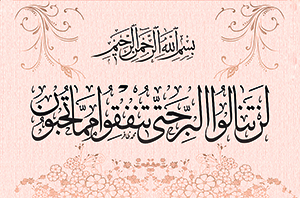 بسم الله الرحمن الرحيم
لن تنالوا البر حتى تنفقوا مما تحبون